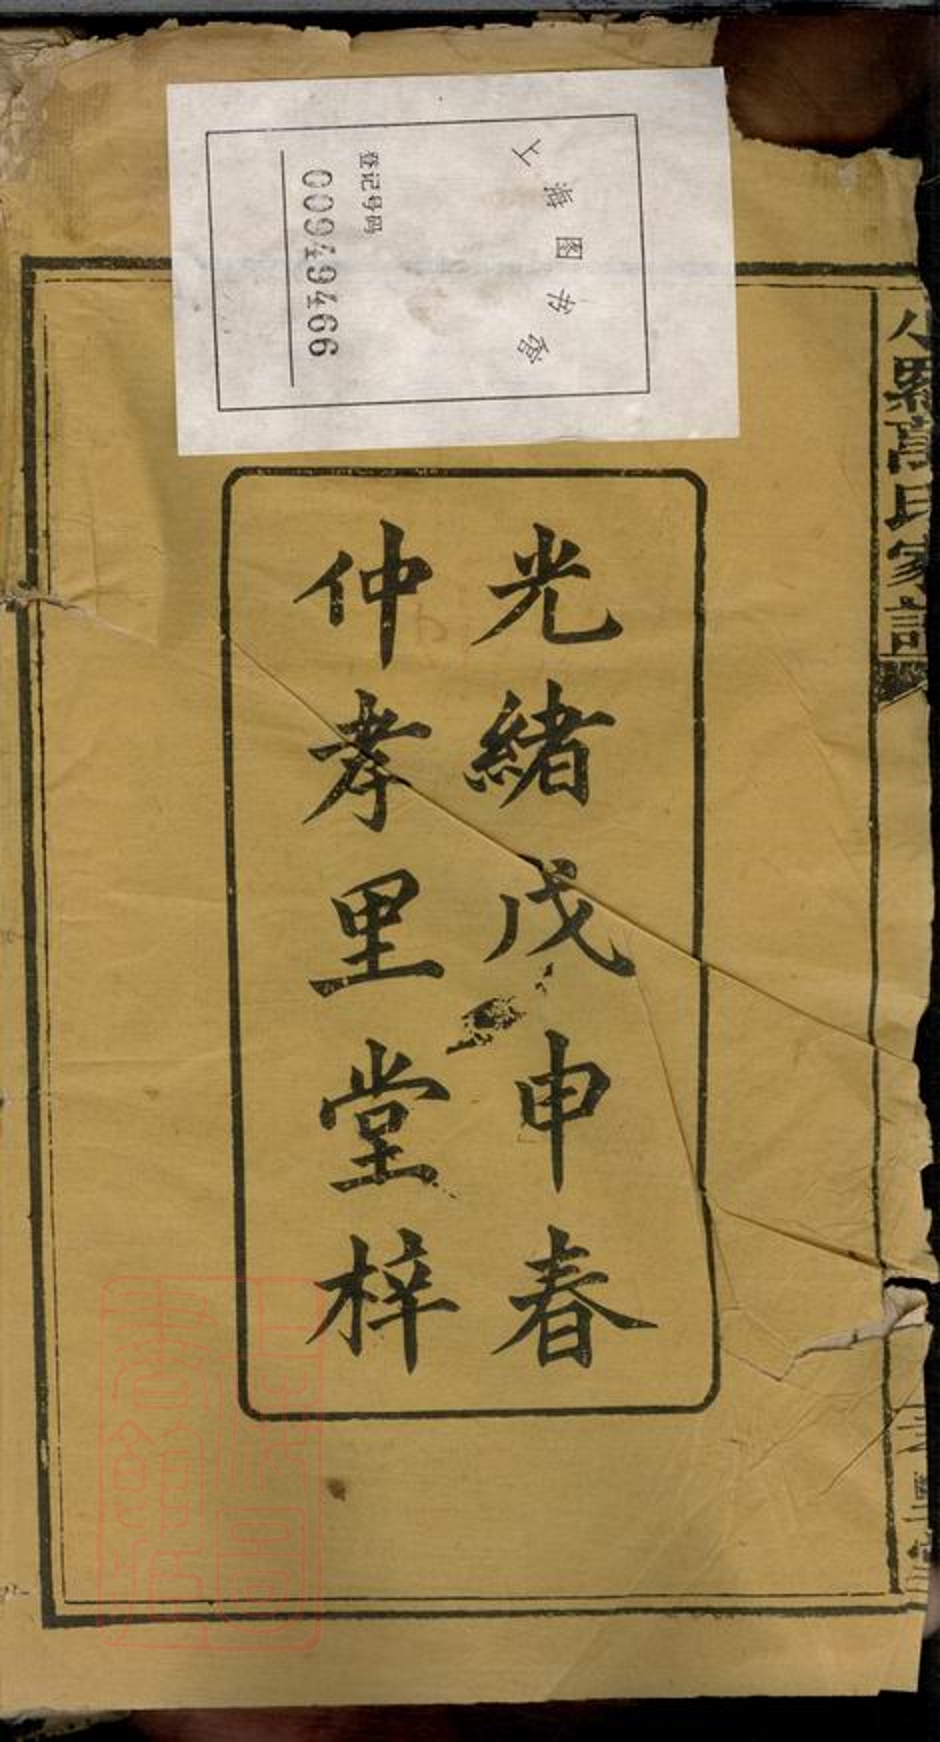 上海图书馆
登记号码
000949496
光緒戊申春
仲孝里堂梓
高氏家譜